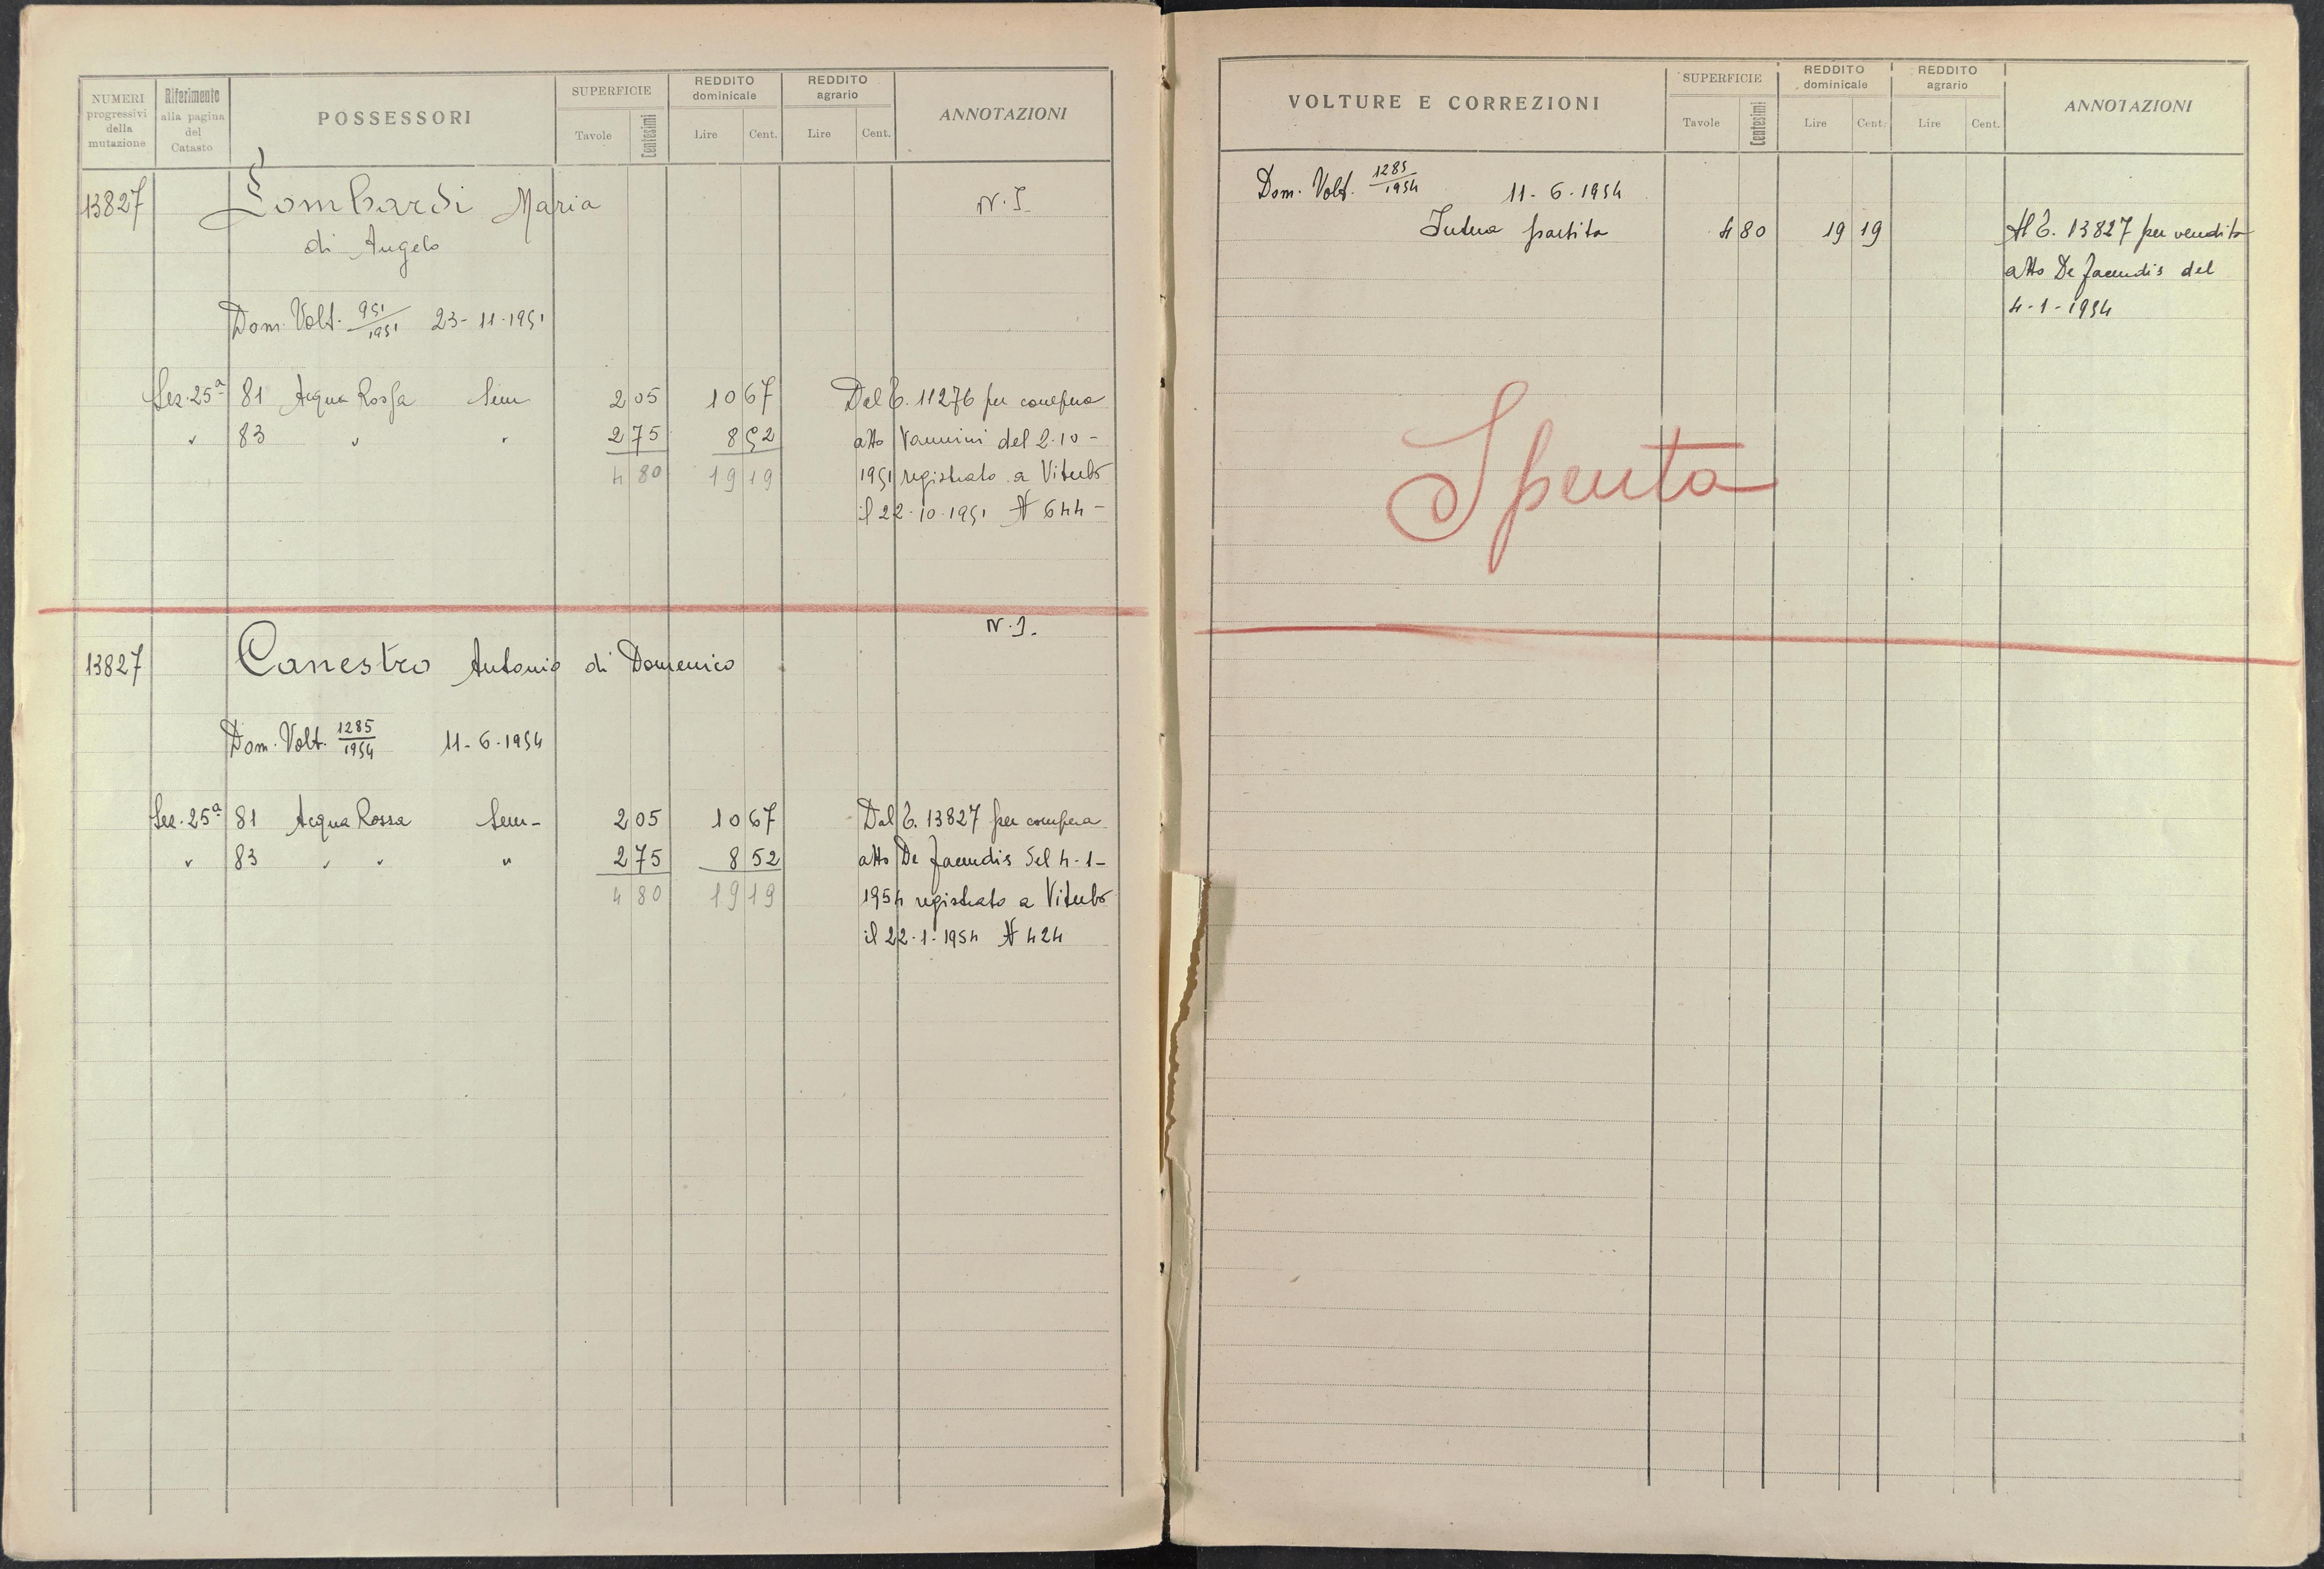 NUMERI progressivi della mutazione
Riferimento alla pagina del Catasto
POSSESSORI
SUPERFICIE
Tavole Centesimi
REDDITO dominicale
Lire Cent.
REDDITO agrario
Lire Cent.
ANNOTAZIONI
13827 Lombardi Maria N. I.
di Angelo
Dom. Volt. 951/1951 23-11-1951
Sez. 25a 81 Acqua Rossa Sem 2 05 10 67 Dal C. 11276 per compera
" 83 " " 2 75 8 52 atto Vannini del 2-10-
4 80 19 19 1951 registrato a Viterbo
il 22-10-1951 N 644-
N. I.
13827 Canestro Antonio di Domenico
Dom. Volt. 1285/1954 11-6-1954
Sez. 25a 81 Acqua Rossa Sem- 2 05 10 67 Dal C. 13827 per compera
" 83 " " " 2 75 8 52 atto De Facendis del 4-1-
4 80 19 19 1954 registrato a Viterbo
il 22-1-1954 N 424
VOLTURE E CORREZIONI
SUPERFICIE
Tavole Centesimi
REDDITO dominicale
Lire Cent.
REDDITO agrario
Lire Cent.
ANNOTAZIONI
Dom. Volt. 1285/1954 11-6-1954
Intera partita 4 80 19 19 Al C. 13827 per vendita
atto De Facendis del
4-1-1954
Spenta